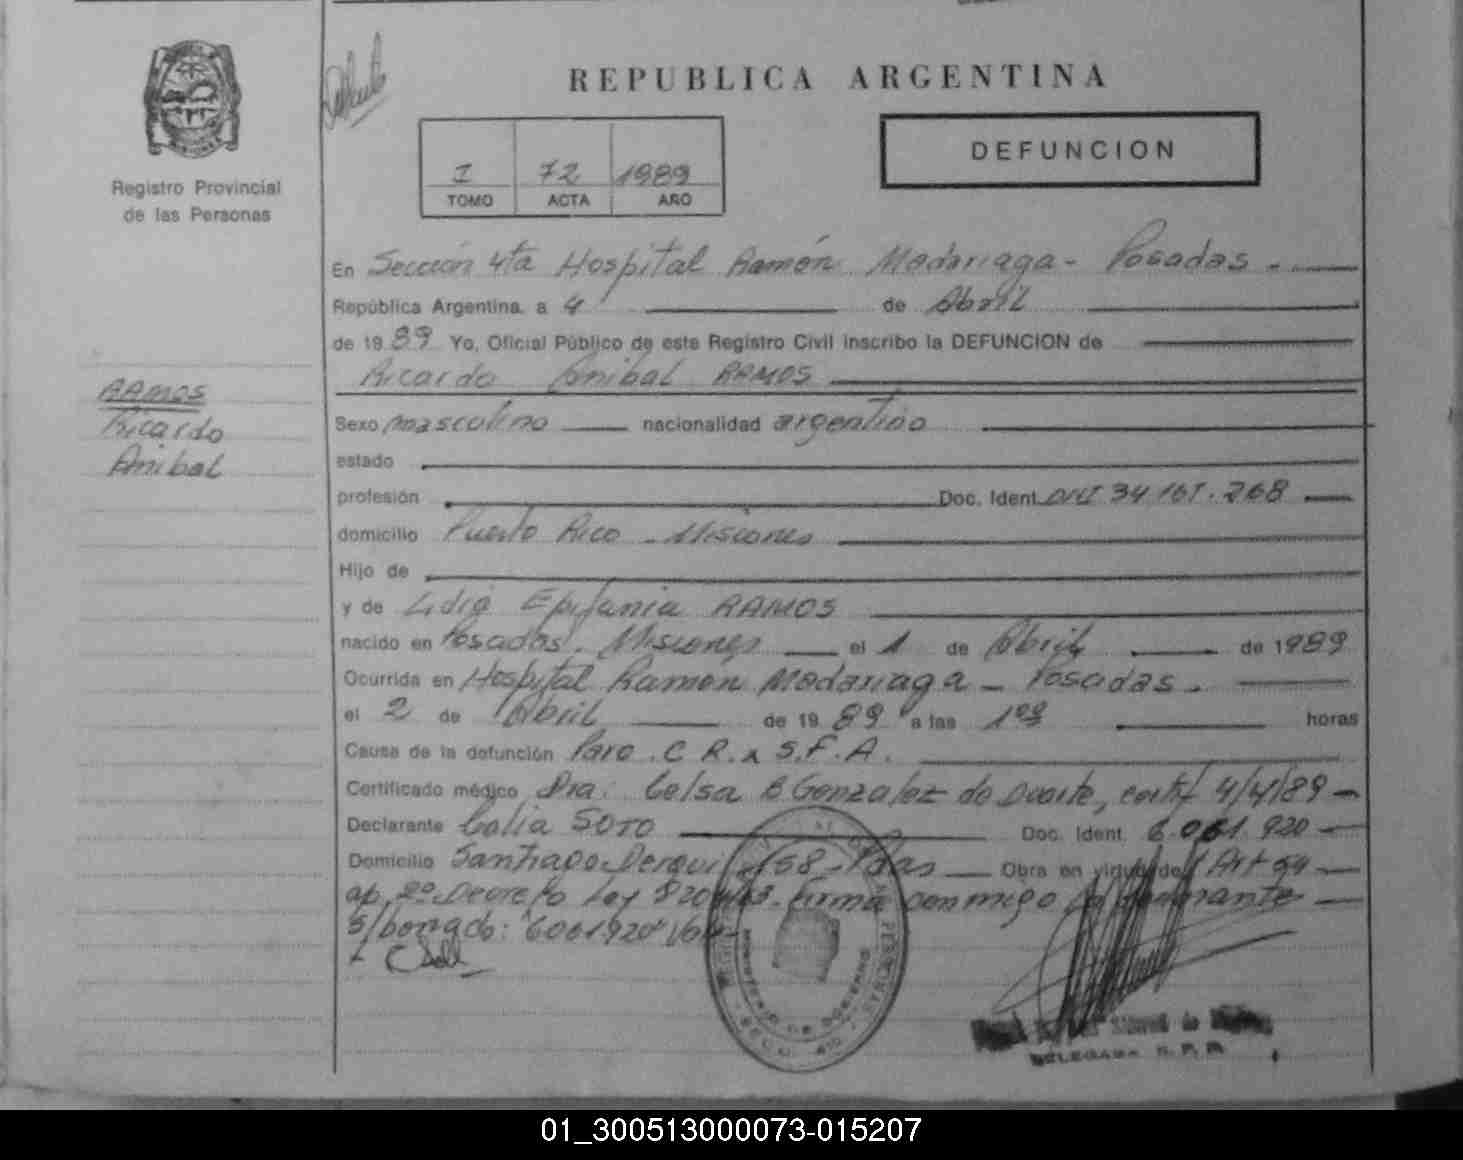 REPUBLICA ARGENTINA
DEFUNCION
I 72 1989
TOMO ACTA AÑO
Registro Provincial
de las Personas
RAMOS
Ricardo
Anibal
En Sección 4ta Hospital Ramón Madariaga - Posadas -
República Argentina, a 4 de Abril
de 19 89 Yo, Oficial Público de este Registro Civil inscribo la DEFUNCION de
Ricardo Anibal RAMOS
Sexo masculino nacionalidad argentino
estado
profesión Doc. Ident. DNI 34.161.268
domicilio Puerto Rico - Misiones
Hijo de
y de Lidia Epifania RAMOS
nacido en Posadas. Misiones el 1 de Abril de 1989
Ocurrida en Hospital Ramón Madariaga - Posadas.
el 2 de Abril de 19 89 a las 1 horas
Causa de la defunción Paro. C. R. x S.F.A.
Certificado médico Dra. Celsa B Gonzalez de Duarte, certif 4/4/89
Declarante Celia SOTO Doc. Ident. 6.061.920
Domicilio Santiago Derqui 158 - Pdas Obra en virtud de Art 54
ap. 2º Decreto Ley 8204/63. Firma conmigo
S/borrado: "6061920"
DELEGADA R. P. P.
01_300513000073-015207